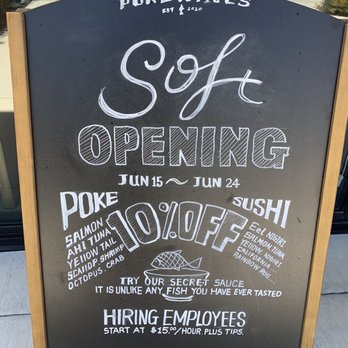 EST 2020
Soft
OPENING
JUN 15 ~ JUN 24
POKE
SALMON
AHI TUNA
YELLOW TAIL
SCALLOP SHRIMP
OCTOPUS. CRAB
10% OFF
SUSHI
EEL NIGIRI
SALMON, TUNA
YELLOW, NIGIRI
CALIFORNIA
RAINBOW ROLL ...
TRY OUR SECRET SAUCE
IT IS UNLIKE ANY FISH YOU HAVE EVER TASTED
HIRING EMPLOYEES
START AT $15.00/HOUR. PLUS TIPS.